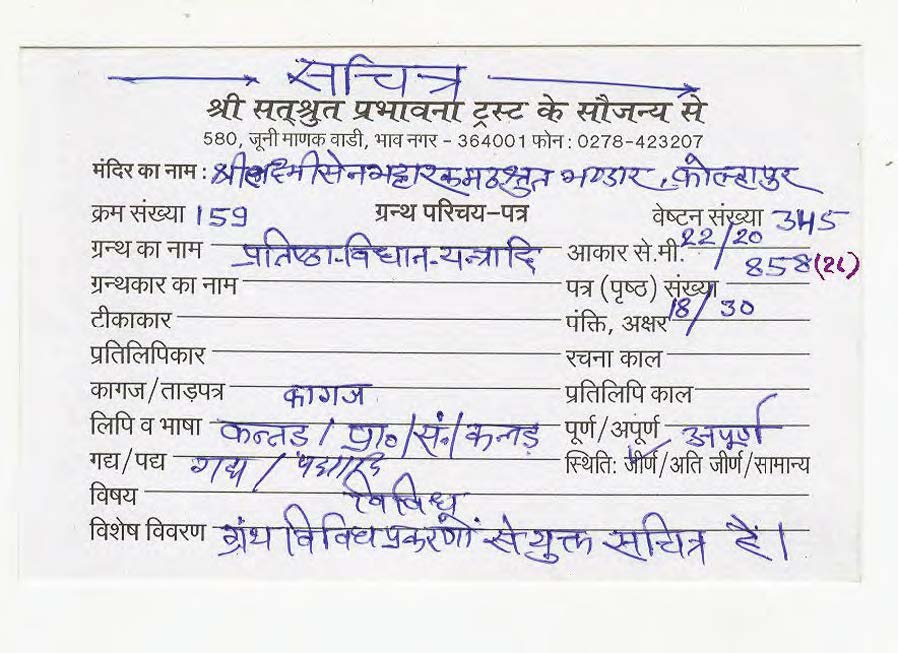 सचित्र
श्री सत्श्रुत प्रभावना ट्रस्ट के सौजन्य से
580, जूनी माणक वाडी, भाव नगर - 364001 फोन : 0278-423207
मंदिर का नाम : श्रीलक्ष्मीसेनभट्टारकमठश्रुत भण्डार, कोल्हापुर
क्रम संख्या 159 ग्रन्थ परिचय-पत्र वेष्टन संख्या 345
ग्रन्थ का नाम प्रतिष्ठा-विधान-यन्त्रादि आकार से.मी. 22/20
ग्रन्थकार का नाम पत्र (पृष्ठ) संख्या 858
टीकाकार पंक्ति, अक्षर 18/30
प्रतिलिपिकार रचना काल
कागज/ताड़पत्र कागज प्रतिलिपि काल
लिपि व भाषा कन्नड / प्रा०/सं०/कन्नड़ पूर्ण/अपूर्ण अपूर्ण
गद्य/पद्य गद्य / स्थिति: जीर्ण/अति जीर्ण/सामान्य
विषय विविध
विशेष विवरण ग्रंथ विविध प्रकरणों से युक्त सचित्र है।